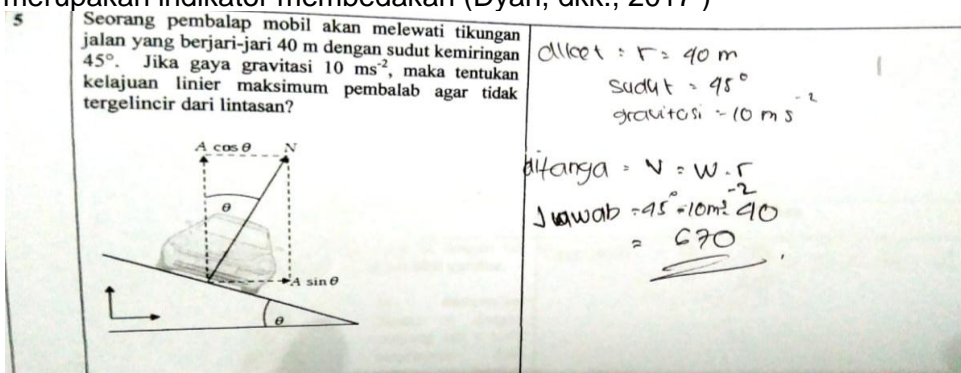 merupakan indikator membedakan (Dyah, dkk., 2017 )
5
Seorang pembalap mobil akan melewati tikungan
jalan yang berjari-jari 40 m dengan sudut kemiringan
45°. Jika gaya gravitasi 10 ms⁻², maka tentukan
kelajuan linier maksimum pembalab agar tidak
tergelincir dari lintasan?
A cos θ N
θ
A sin θ
θ
diket : r = 40 m
sudut = 45°
gravitasi = 10 ms⁻²
ditanya = V = W.r
Jawab = 45° = 10 m² ⁻² 40
= 670